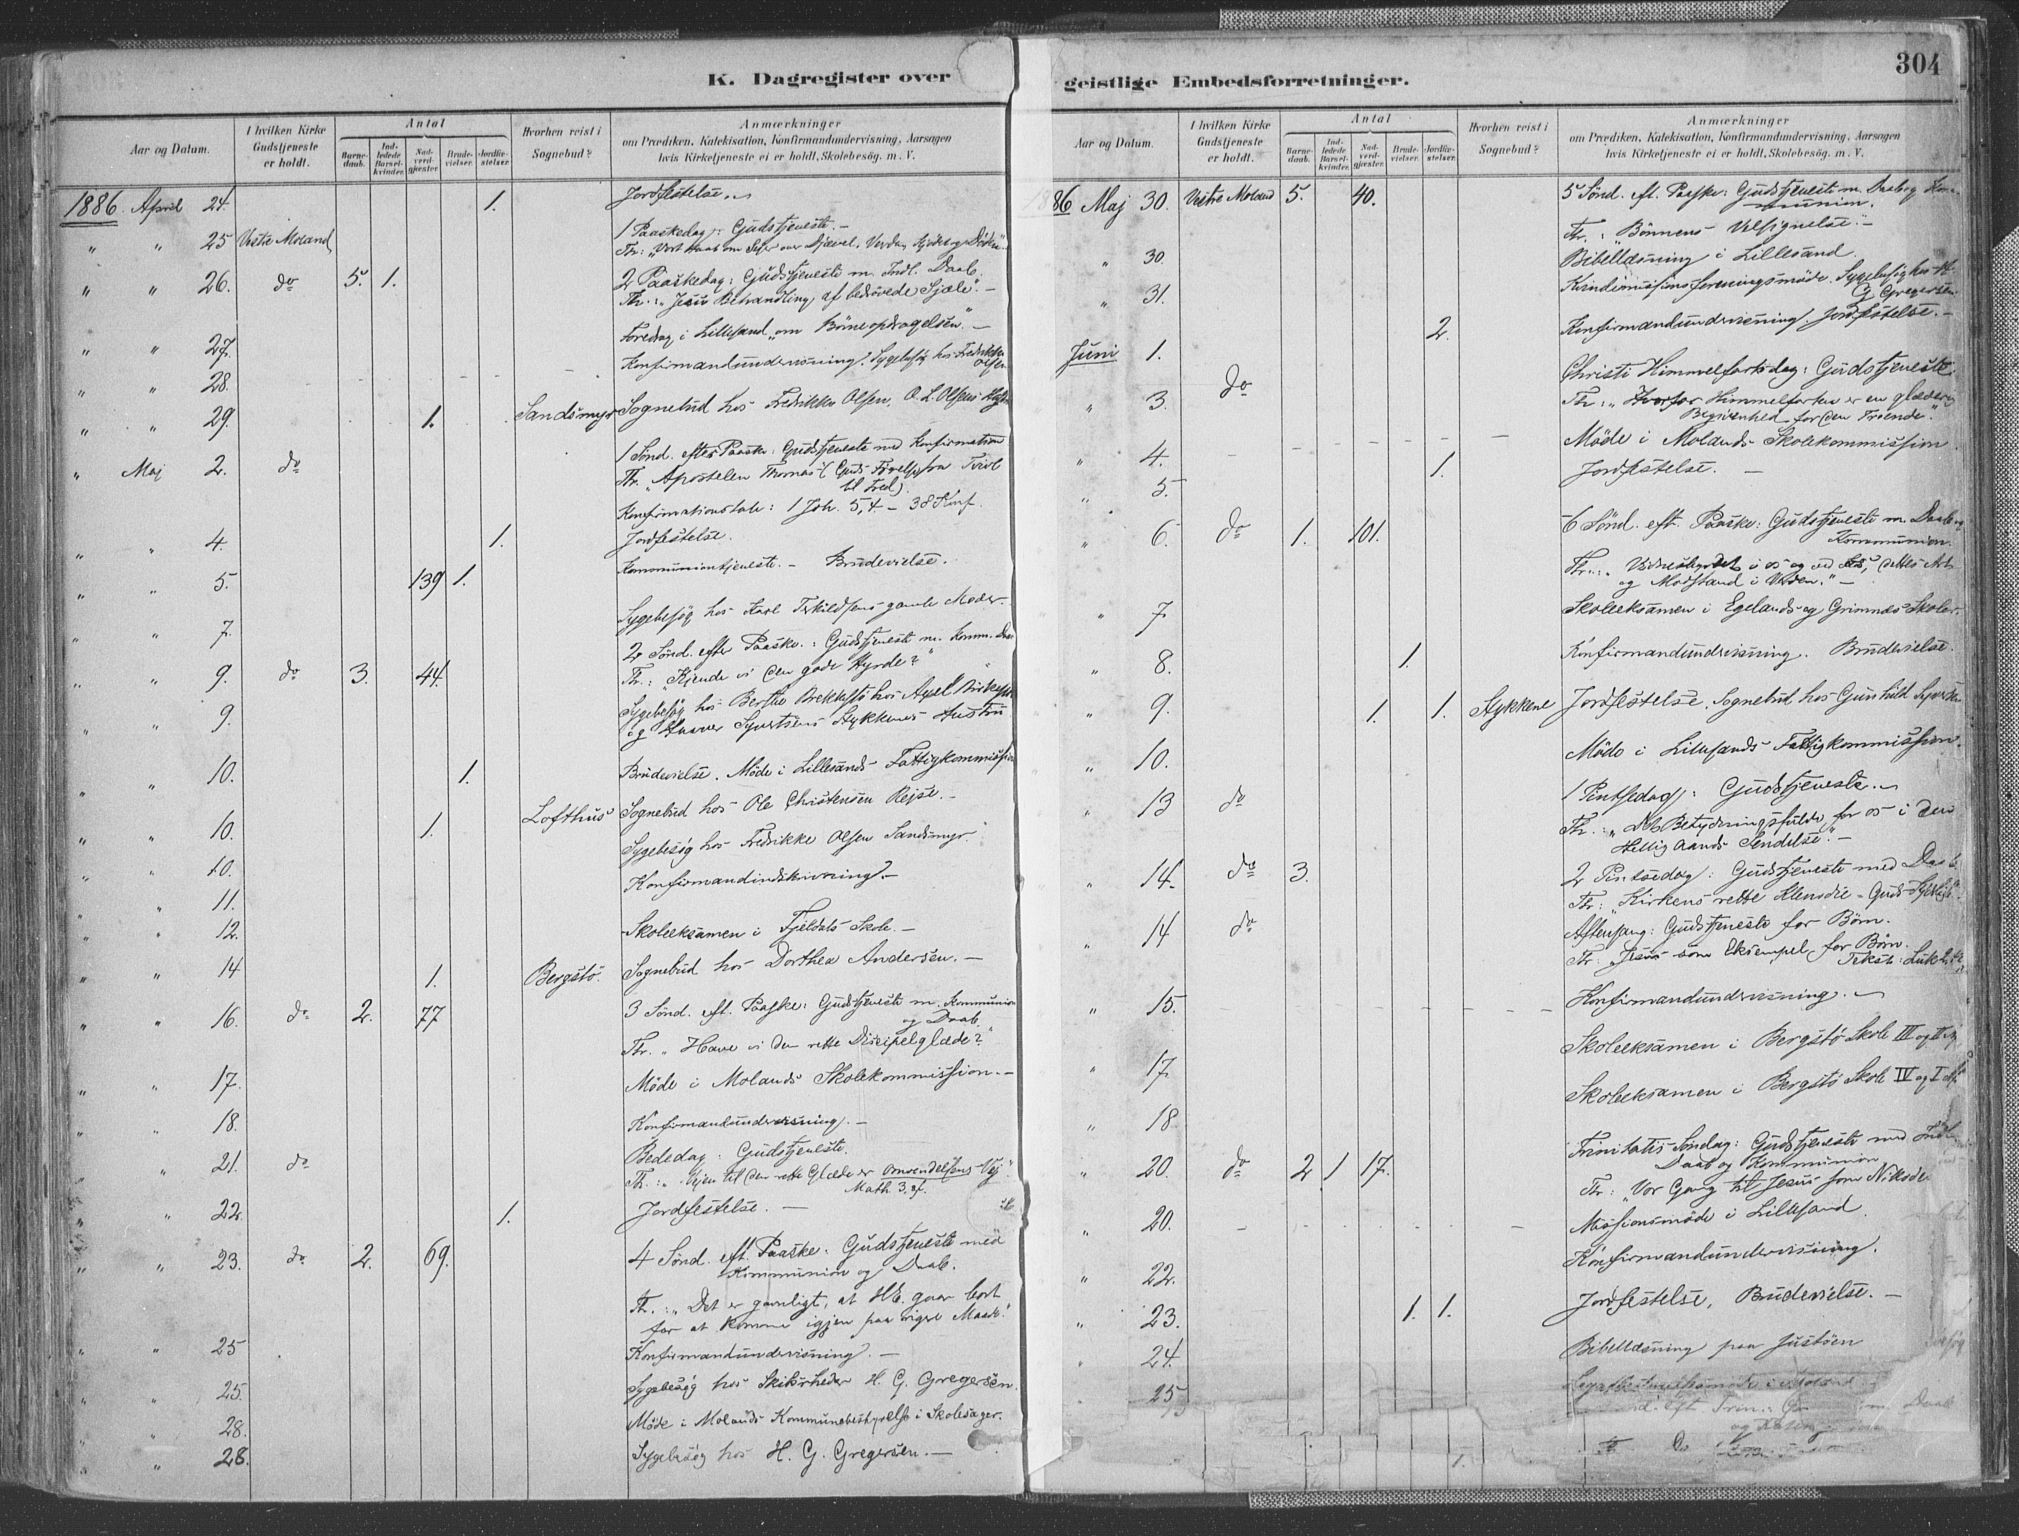 K. Dagregister over geistlige Embedsforretninger.
304
Aar og Datum.
I hvilken Kirke Gudstjeneste er holdt.
Antal
Barne-daab.
Ind-ledede Barsel-kvinder.
Nad-verd-gjester.
Brude-vielser.
Jordfæ-stelser.
Hvorhen reist i Sognebud?
Anmærkninger
om Prædiken, Katekisation, Konfirmandundervisning, Aarsagen
hvis Kirketjeneste ei er holdt, Skolebesög. m. V.
1886 April 24. 1. Jordfestelse.
" " 25 Vestre Moland 1 Paaskedag: Gudstjeneste. –
" " 26. do 5. 1. 2 Paaskedag: Gudstjeneste m. Indl. Daab.
Th.: "Jesu Behandling af bedrövede Sjæle". –
Foredrag i Lillesand "om Börneopdragelsen". –
" " 27.
Konfirmandundervisning. Sygebesög hos Fredrikke Olsen
" " 28.
" " 29. 1. Sandsmyr Sognebud hos Fredrikke Olsen, O. L. Olsens
" Maj 2. do 1 Sönd. efter Paaske: Gudstjeneste med Konfirmation
Th. "Apostelen Thomas (Guds fra Tvivl
til Tro)
Konfirmationstale: 1 Joh. 5,4. – 38 Konf.
" " 4. 1. Jordfestelse.
" " 5. 139 1. Kommuniontjeneste. – Brudevielse.
" " 7. Sygebesög hos gamle Moder.
" " 9. do 3. 44. 2 Sönd. efter Paaske: Gudstjeneste m. Komm. Daab
Th.: "Kjende vi den gode Hyrde?"
" " 9. Sygebesög hos Berthe hos
og Stykkenes Hustru
" " 10. 1. Brudevielse. Möde i Lillesands Fattigkommission
" " 10. 1. Lofthus Sognebud hos Ole Christensen Rejse. –
" " 10. Sygebesög hos Fredrikke Olsen Sandsmyr.
" " 11. Konfirmandindskrivning. –
" " 12. Skoleeksamen i Fjeldals Skole. –
" " 14 1. Bergstö. Sognebud hos Dorthea Andersen. –
" " 16. do 2. 77 3 Sönd. eft. Paaske: Gudstjeneste m. Kommunion
og Daab.
Th. "Have vi den rette Discipelglæde?"
" " 17. Möde i Molands Skolekommission. –
" " 18. Konfirmandundervisning. –
" " 21. do Bededag: Gudstjeneste.
Th.: "Vejen til den rette Glæde er Omvendelsens Vej."
Math 3,
" " 22. 1. Jordfestelse. –
" " 23. do 2. 69. 4 Sönd. eft. Paaske: Gudstjeneste med
Kommunion og Daab.
Th.: "Det er gavnligt, at gaar bort
for at komme igjen paa Maade."
" " 25 Konfirmandundervisning. –
" " 25. Sygebesög hos Skibsrheder H. G. Gregersen.
" " 28. Möde i Molands Kommunebestyrelse i Skolesager.
" " 28. Sygebesög hos H. G. Gregersen. –
Aar og Datum.
I hvilken Kirke Gudstjeneste er holdt.
Antal
Barne-daab.
Ind-ledede Barsel-kvinder.
Nad-verd-gjester.
Brude-vielser.
Jordfæ-stelser.
Hvorhen reist i Sognebud?
Anmærkninger
om Prædiken, Katekisation, Konfirmandundervisning, Aarsagen
hvis Kirketjeneste ei er holdt, Skolebesög. m. V.
1886 Maj 30. Vestre Moland 5. 40. 5 Sönd. eft. Paaske: Gudstjeneste m. Daab og Kom-
munion.
Th.: Bönnens Velsignelse. –
" 30. Bibellæsning i Lillesand.
" 31. Kvindemissionsforeningsmöde. Sygebesög hos H.
G Gregersen.
Juni 1. 2. Konfirmandundervisning. Jordfestelse. –
" 3. do Christi Himmelfartsdag: Gudstjeneste.
Th.: "Hvorfor Himmelfarten er en glædelig
Begivenhed for den Troende".
" 4. Möde i Molands Skolekommission.
" 5. 1. Jordfestelse. –
" 6. do 1. 101. 6 Sönd. eft. Paaske: Gudstjeneste m. Daab og
Kommunion.
Th.: "Vidnesbyrdet i os og ved os, dettes
og Modstand i Verden." –
" 7. Skoleeksamen i Egelands og Grimnes Skoler.
" 8. 1. Konfirmandundervisning. Brudevielse.
" 9. 1. 1. Stykkene Jordfestelse. Sognebud hos Gunhild
" 10. Möde i Lillesands Fattigkommission.
" 13 do 1 Pintsedag: Gudstjeneste.
Th.: "Det Betydningsfulde for os i den
Hellig Aands Sendelse". –
" 14. do 3. 2 Pintsedag: Gudstjeneste med Daab
Th.: "Kirkens rette Klenodie – Guds
" 14 do Aftensang: Gudstjeneste for Börn.
Th: "Jesus som Eksempel for Börn.
Tekst: Luk
" 15. Konfirmandundervisning.
" 17. Skoleeksamen i Bergstö Skole III og II
" 18. Skoleeksamen i Bergstö Skole IV og I
" 20. do 2 1 17. Trinitatis Söndag: Gudstjeneste med Indl.
Daab og Kommunion
Th: "Vor Gang til Jesus som
" 20. Missionsmöde i Lillesand.
" 22. Konfirmandundervisning.
" 23. 1. 1. Jordfestelse, Brudevielse. –
" 24. Bibellæsning paa Justöen
" 25
eft Trin.: m. Daab
og
1.